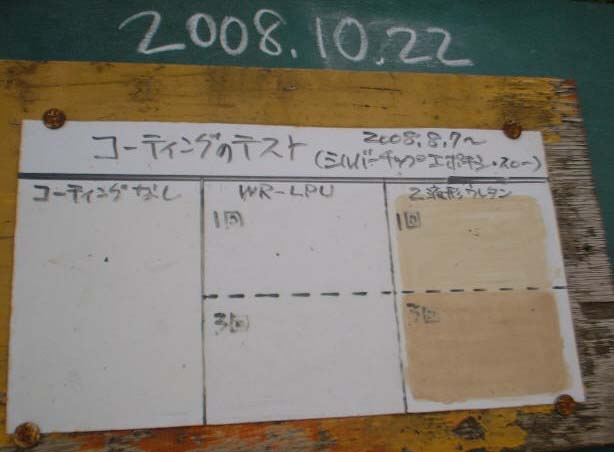 2008.10.22
コーティングのテスト 2008.8.7〜
(シルバーチップエポキシ・スロー)
コーティングなし WR-LPU 2液形ウレタン
1回 1回
3回 3回